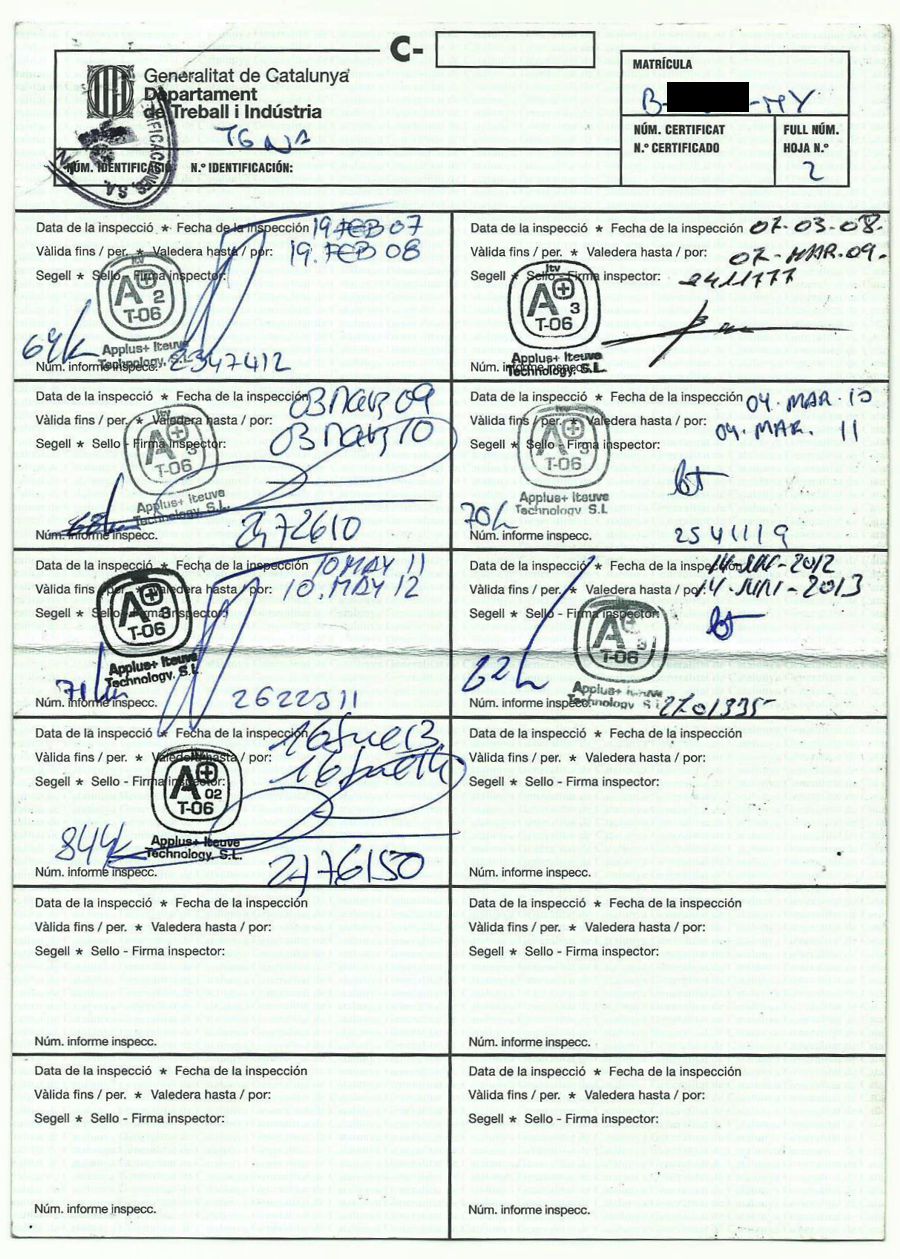 C-
Generalitat de Catalunya
Departament
de Treball i Indústria
TGNA
NÚM. IDENTIFICACIÓ N.º IDENTIFICACIÓN:
MATRÍCULA
B- -MY
NÚM. CERTIFICAT
N.º CERTIFICADO
FULL NÚM.
HOJA N.º
2
Data de la inspecció * Fecha de la inspección 19 FEB 07
Vàlida fins / per. * Valedera hasta / por: 19. FEB 08
Segell * Sello - Firma inspector:
itv
A+ 2
T-06
Applus+ Iteuve
Technology, S.L.
64k
Núm. informe inspecc. 2347412
Data de la inspecció * Fecha de la inspección 07-03-08.
Vàlida fins / per. * Valedera hasta / por: 07-MAR-09.
Segell * Sello - Firma inspector: 2411777
itv
A+ 3
T-06
Applus+ Iteuve
Technology, S.L.
Núm. informe inspecc.
Data de la inspecció * Fecha de la inspección 03 Marz 09
Vàlida fins / per. * Valedera hasta / por: 03 Marz 10
Segell * Sello - Firma inspector:
itv
A+ 3
T-06
Applus+ Iteuve
Technology, S.L.
68km
Núm. informe inspecc. 2472610
Data de la inspecció * Fecha de la inspección 04. MAR. 10
Vàlida fins / per. * Valedera hasta / por: 04. MAR. 11
Segell * Sello - Firma inspector:
A+ 3
T-06
Applus+ Iteuve
Technology, S.L.
70k
Núm. informe inspecc. 2541119
Data de la inspecció * Fecha de la inspección 10 MAY 11
Vàlida fins / per. * Valedera hasta / por: 10. MAY 12
Segell * Sello - Firma inspector:
A+ 3
T-06
Applus+ Iteuve
Technology, S.L.
71km
Núm. informe inspecc. 2622311
Data de la inspecció * Fecha de la inspección 14-JUN-2012
Vàlida fins / per. * Valedera hasta / por: 14-JUNI-2013
Segell * Sello - Firma inspector:
A+ 3
T-06
Applus+ Iteuve
Technology, S.L.
82k
Núm. informe inspecc. 2701335
Data de la inspecció * Fecha de la inspección 16 Jul 13
Vàlida fins / per. * Valedera hasta / por: 16 Jul 14
Segell * Sello - Firma inspector:
A+ 02
T-06
Applus+ Iteuve
Technology, S.L.
844k
Núm. informe inspecc. 2776150
Data de la inspecció * Fecha de la inspección
Vàlida fins / per. * Valedera hasta / por:
Segell * Sello - Firma inspector:
Núm. informe inspecc.
Data de la inspecció * Fecha de la inspección
Vàlida fins / per. * Valedera hasta / por:
Segell * Sello - Firma inspector:
Núm. informe inspecc.
Data de la inspecció * Fecha de la inspección
Vàlida fins / per. * Valedera hasta / por:
Segell * Sello - Firma inspector:
Núm. informe inspecc.
Data de la inspecció * Fecha de la inspección
Vàlida fins / per. * Valedera hasta / por:
Segell * Sello - Firma inspector:
Núm. informe inspecc.
Data de la inspecció * Fecha de la inspección
Vàlida fins / per. * Valedera hasta / por:
Segell * Sello - Firma inspector:
Núm. informe inspecc.